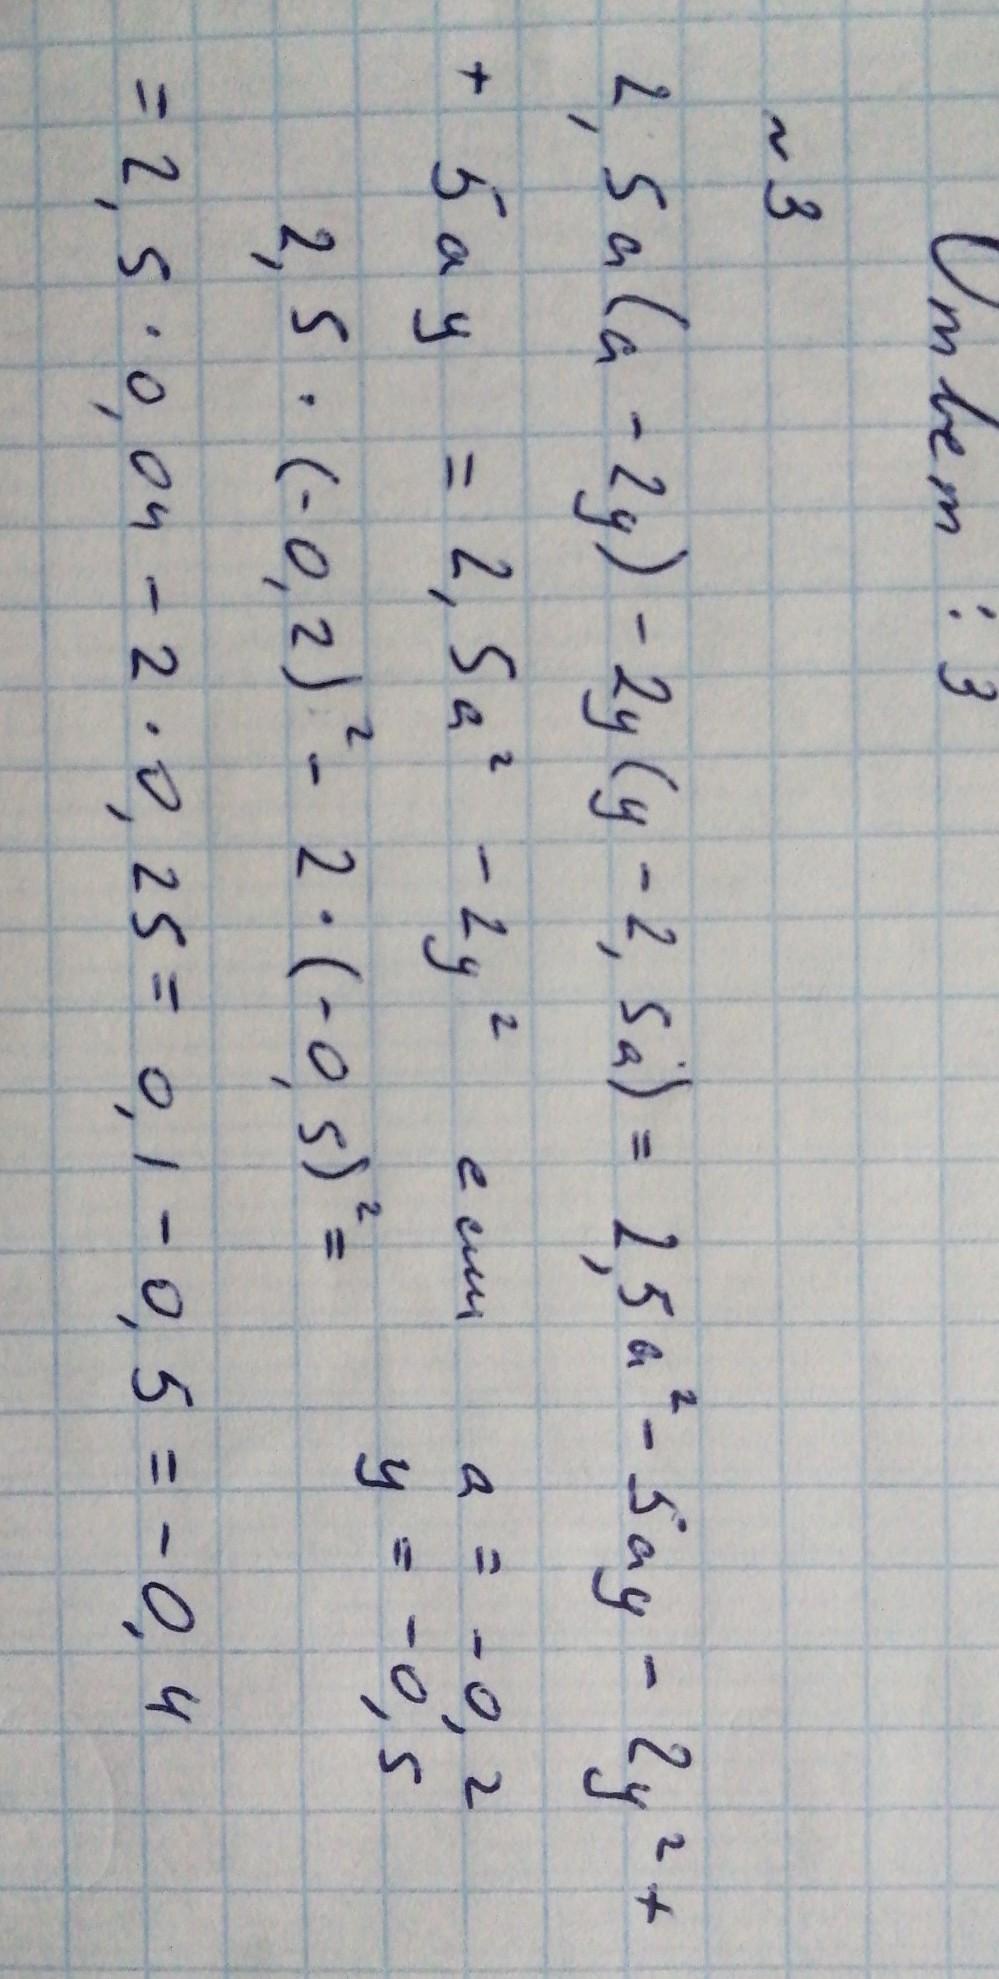 Ответ : 3
~3
2,5a(a-2y)-2y(y-2,5a)= 2,5a²-5ay-2y²+
+ 5ay = 2,5a² -2y² если a = -0,2
y = -0,5
2,5·(-0,2)²- 2·(-0,5)²=
= 2,5·0,04-2·0,25= 0,1-0,5=-0,4